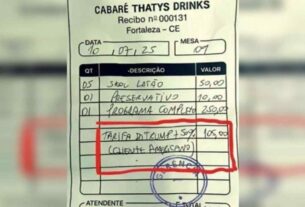 CABARÉ THATYS DRINKS
Recibo nº 000131
Fortaleza - CE
DATA MESA
10, 07, 25 09
QT -DESCRIÇÃO- VALOR
05 SKOL LATÃO 50,00
01 PRESERVATIVO 10,00
01 PROGRAMA COMPLETO 250,00
TARIFA DI TRUMP + 50% 105,00
(CLIENTE AMERICANO)
ATENDENTE TOTAL